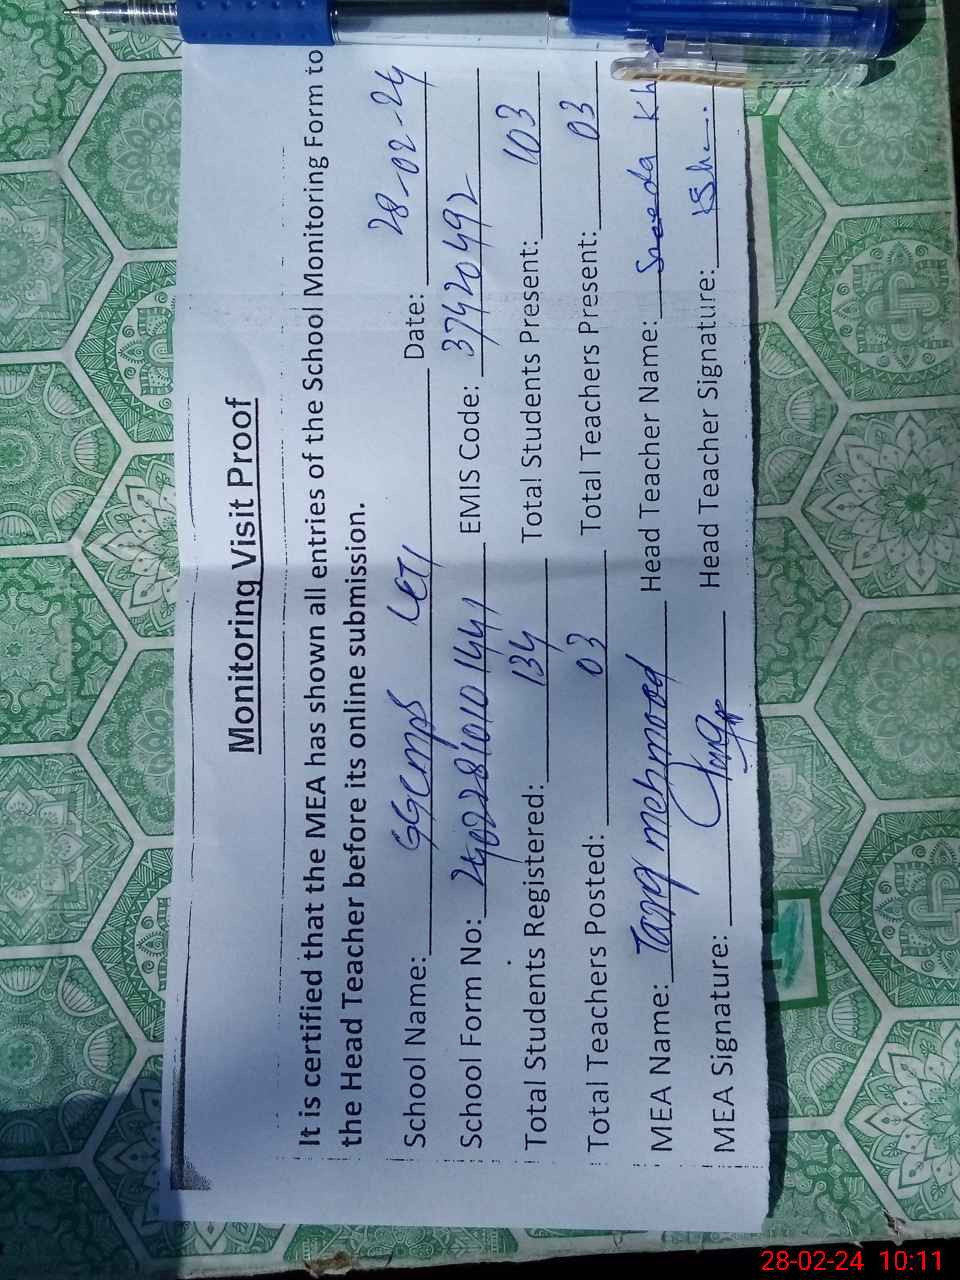 Monitoring Visit Proof
It is certified that the MEA has shown all entries of the School Monitoring Form to
the Head Teacher before its online submission.
School Name: GGCMPS LETI Date: 28-02-24
School Form No: 2402281010101441 EMIS Code: 37420492
Total Students Registered: 134 Total Students Present: 103
Total Teachers Posted: 03 Total Teachers Present: 03
MEA Name: Tariq mehmood Head Teacher Name: Saeeda Kh
MEA Signature: Head Teacher Signature:
Point
28-02-24 10:11